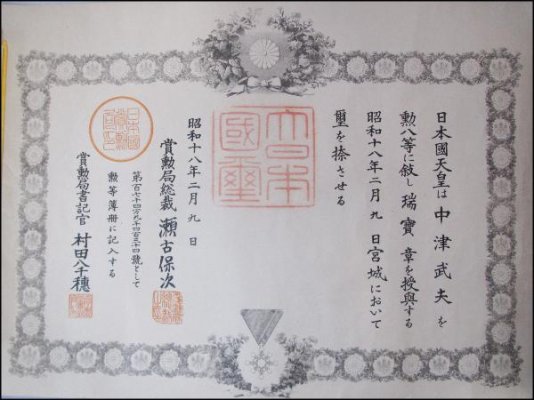 日本國天皇は中津武夫を
勲八等に敍し瑞寶章を授與する
昭和十八年二月九日宮城において
璽を捺させる
大日本國璽
昭和十八年二月九日
賞勲局総裁 瀬古保次
第百七十四万九千四百三十四號として
勲等簿冊に記入する
賞勲局書記官 村田八千穂